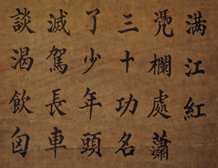 满江紅
凴欄處蕭
三十功名
了少年頭
滅駕長車
談渴飲匈